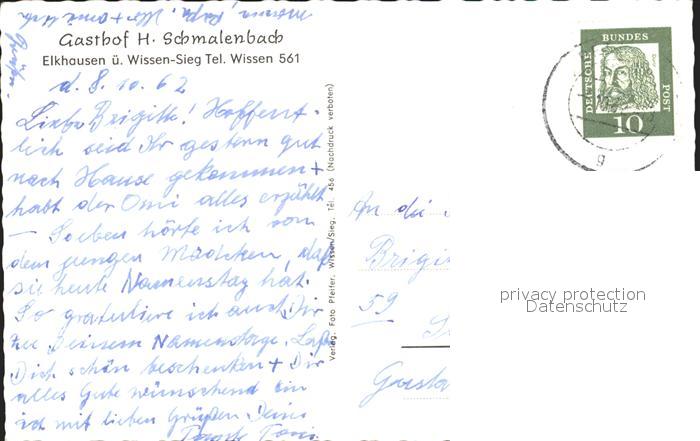 Gasthof H. Schmalenbach
Elkhausen ü. Wissen-Sieg Tel. Wissen 561
d. 8. 10. 62
Liebe Brigitte! Hoffent-
lich seid Ihr gestern gut
nach Hause gekommen +
habt der Omi alles erzählt
— Soeben hörte ich von
dem jungen Mädchen, daß
sie heute Namenstag hat.
So gratuliere ich auch Dir
zu Deinem Namenstage. Laß
Dich schön beschenken + Dir
alles Gute wünschend bin
ich mit lieben Grüßen Deine
Tante Toni
Verlag: Foto Pfeifer, Wissen/Sieg, Tel. 456 (Nachdruck verboten)
DEUTSCHE BUNDES POST
10
g
An die
Brigi
59
privacy protection
Datenschutz